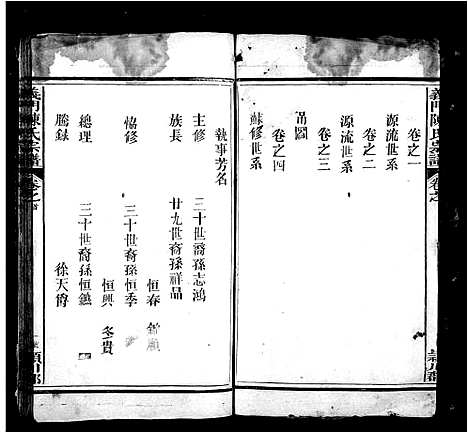 義門陳氏宗譜
卷之
潁川郡
卷之一
源流世系
卷之二
源流世系
卷之三
卷之四
蘇修世系
執事芳名
主修 三十世裔孫志鴻
族長 廿九世裔孫祥品
恒春
協修 三十世裔孫恒季
恒興 冬貴
總理 三十世裔孫恒鑑
謄錄 徐天爵
義門陳氏宗譜
卷之首
潁川郡